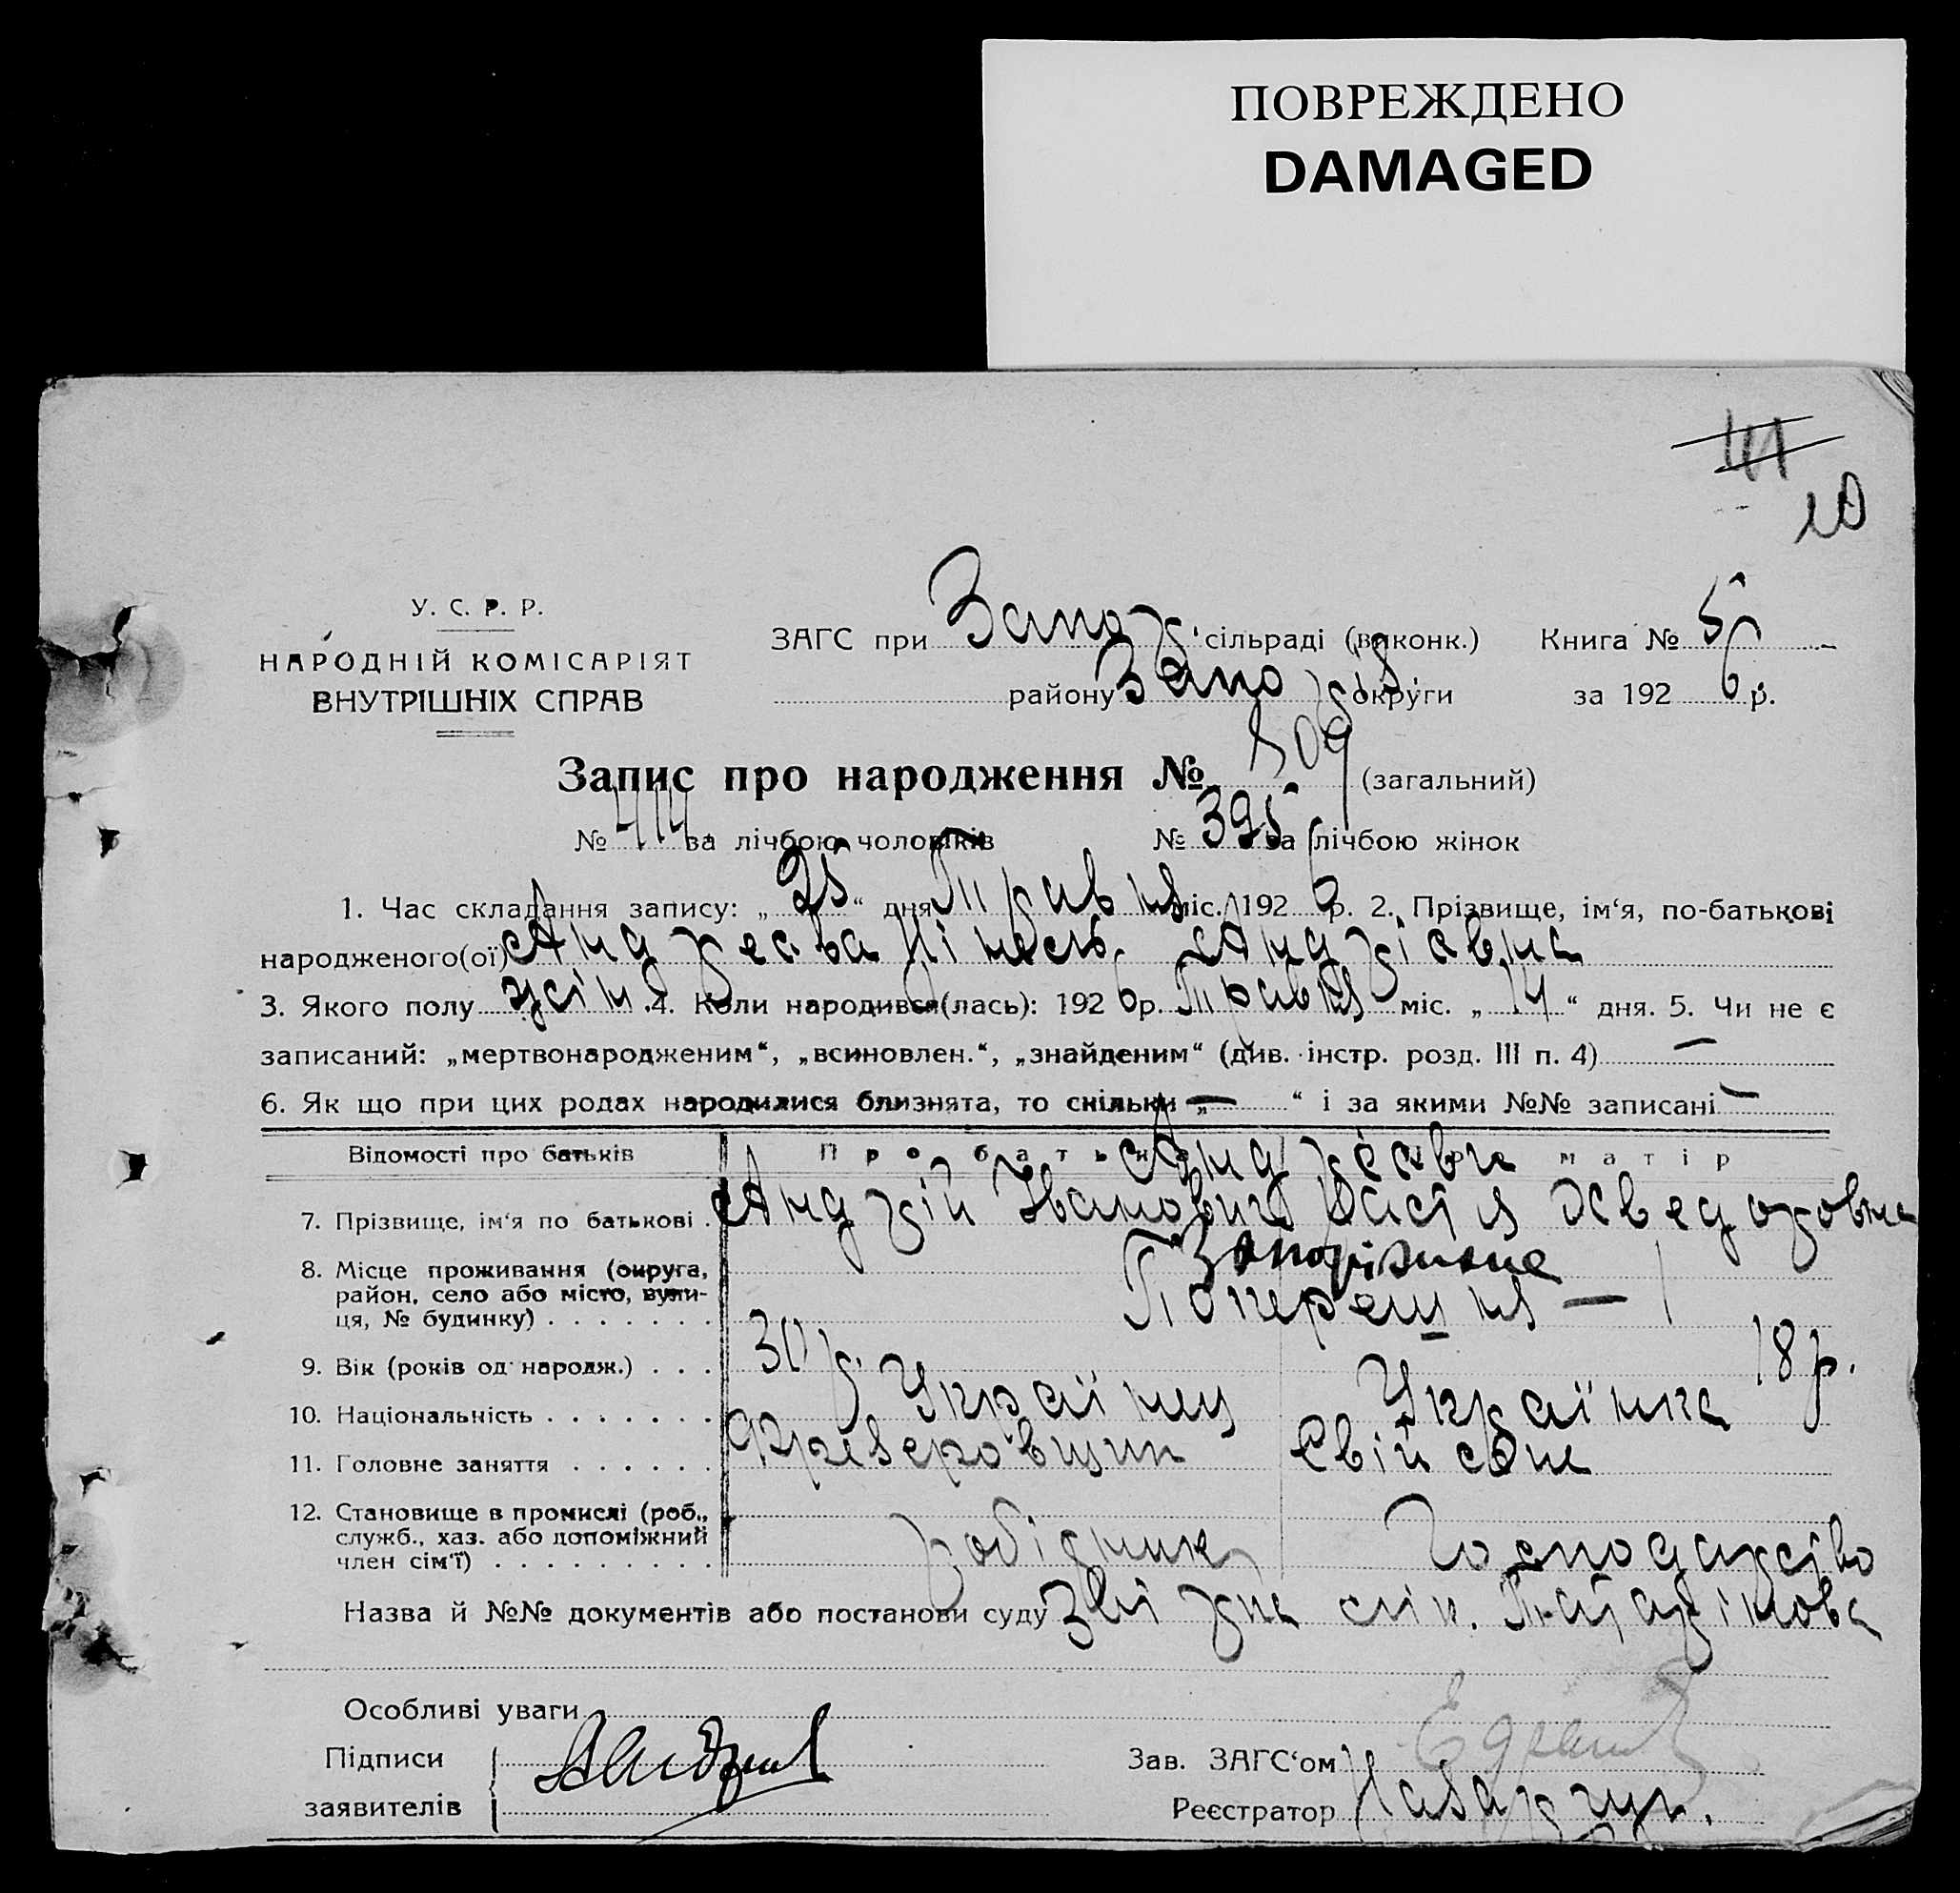 ПОВРЕЖДЕНО
DAMAGED
111
10
У. С. Р. Р.
НАРОДНІЙ КОМІСАРІЯТ
ВНУТРІШНІХ СПРАВ
ЗАГС при Запор. сільраді (виконк.) Книга № 5
району Запоріз. округи за 1926 р.
Запис про народження № 809 (загальний)
№ 414 за лічбою чоловіків № 395 за лічбою жінок
1. Час складання запису: „25“ дня Травня міс. 1926 р. 2. Прізвище, ім‘я, по-батькові
народженого(ої) Андреєва Нінель Андріевна
3. Якого полу жін. 4. Коли народився(лась): 1926 р. Травня міс. „14“ дня. 5. Чи не є
записаний: „мертвонародженим“, „всиновлен.“, „знайденим“ (див. інстр. розд. III п. 4) —
6. Як що при цих родах народилися близнята, то скільки „—“ і за якими №№ записані —
Відомості про батьків Про батька матір
Андреєви
7. Прізвище, ім‘я по батькові . Андрій Іванович Настя Хведоровна
8. Місце проживання (округа, район, село або місто, вули-ця, № будинку) . . . . . . . Запоріжжа
9. Вік (років од народж.) . . . 30 р. 18 р.
10. Національність . . . . . . . Українец Українка
11. Головне заняття . . . . . . Фрезеровщик
12. Становище в промислі (роб., служб., хаз. або допоміжний член сім‘ї) . . . . . . . . . робідник Господарство
Назва й №№ документів або постанови суду
Особливі уваги
Підписи
заявителів
Зав. ЗАГС‘ом
Реєстратор